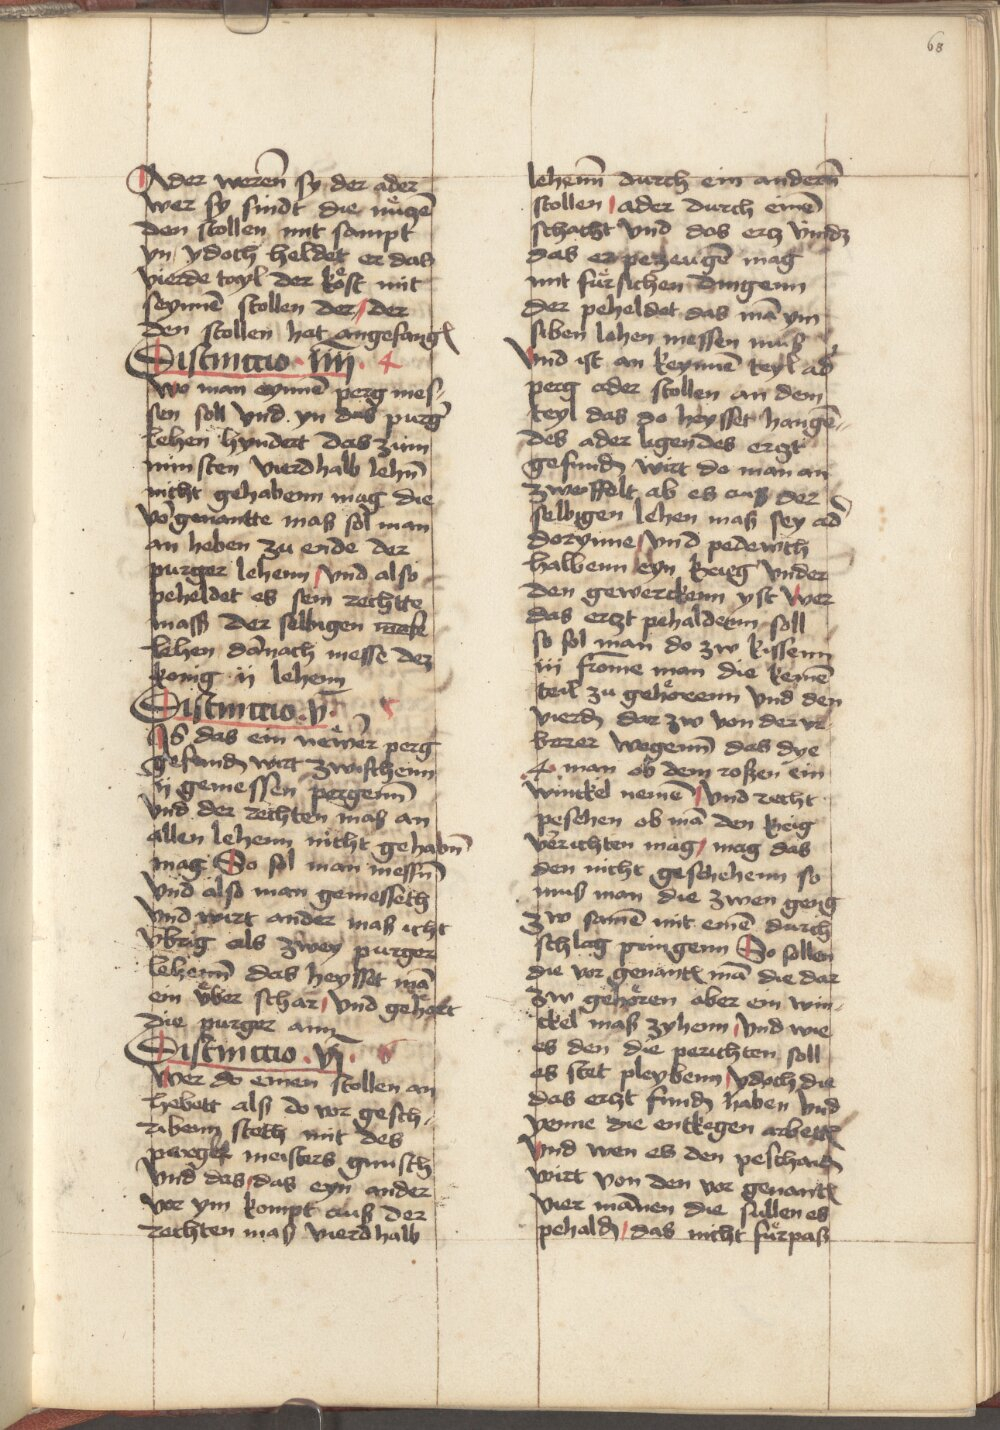 68
Ader weren̄ sy der ader
wer sy sindt die mu̇gē
den stollen mit sampt
yn ydoch heldet er das
vierde tayl der kost mit
seynnē stollen der der
den stollen hat angefangē
Distinctio · iiii · 4
Wo man eynnē perg mes-
sen soll vnd yn das purg
lehen hyndert das zum
minsten vierdhalb lehn̄
nicht gehabenn mag die
vor genantte mass sol man
an heben zu ende der
purger lehenn vnd also
peheldet es sein rechtte
mass der selbigen
lehen darnach messe dez
konig ij lehenn
Distinctio · v · 5
IS das ein newer perg
gefundn̄ wirt zwischenn
ij gemessen pergenn̄
vnd der rechten mass an
allen lehenn nicht gehabn̄
mag So sol man messn̄
vnd also man gemesseth
vnd wirt ander mass icht
vbrig als zwey purger
lehenn̄ das heysset mā
ein vber schar vnd gehort
die purger ann
Distinctio · vj · 6
Wer do einen stollen an
hebett als do vor gesch-
ribenn steth mit des
meisters gunsth
vnd das das eyn ander
vor ym kompt auss der
rechten mass vierdhalb
lehenn̄ durch ein andern̄
stollen ader durch einē
schacht vnd das ercz vindz
das er peczeugē mag
mit fursichen dingenn
der peheldet das mā ym
siben lehen messen muss
Vnd ist an keynnē teyl ad
perg ader stollen an dem
teyl das do heysset hangē-
des ader ligendes erczt
gefundn̄ wirt do man an
zweiffelt ab es auss der
selbigen lehen mass sey ad
dorynne vnd
halbenn eyn krig vnder
den gewerckenn yst Wer
das erczt pehaldenn soll
so sol man do zw kissenn
iii frome man die keinē
teil zu gehorenn vnd den
vierdn̄ dar zw von der vr
borer wegenn̄ das dye
4 man ob dem roßen ein
winckel nemē vnd recht
peschen ob mā den krig
verichten mag mag das
den nicht geschehenn so
muss man die zwen geng
zw samē mit einē durch
schlag pringenn So sollen
die vor genantē mā die dar
zw gehoren aber ein win-
ckel mass zyhenn vnd wie
es den die perichten soll
es stet pleybenn ydoch die
das erczt fundn̄ haben vnd
yenne die entkegen arbettē
Vnd wen es den peschaidn̄
wirt von den vor genantē
vier mannen die sullen es
pehaldn̄ das nicht furpass